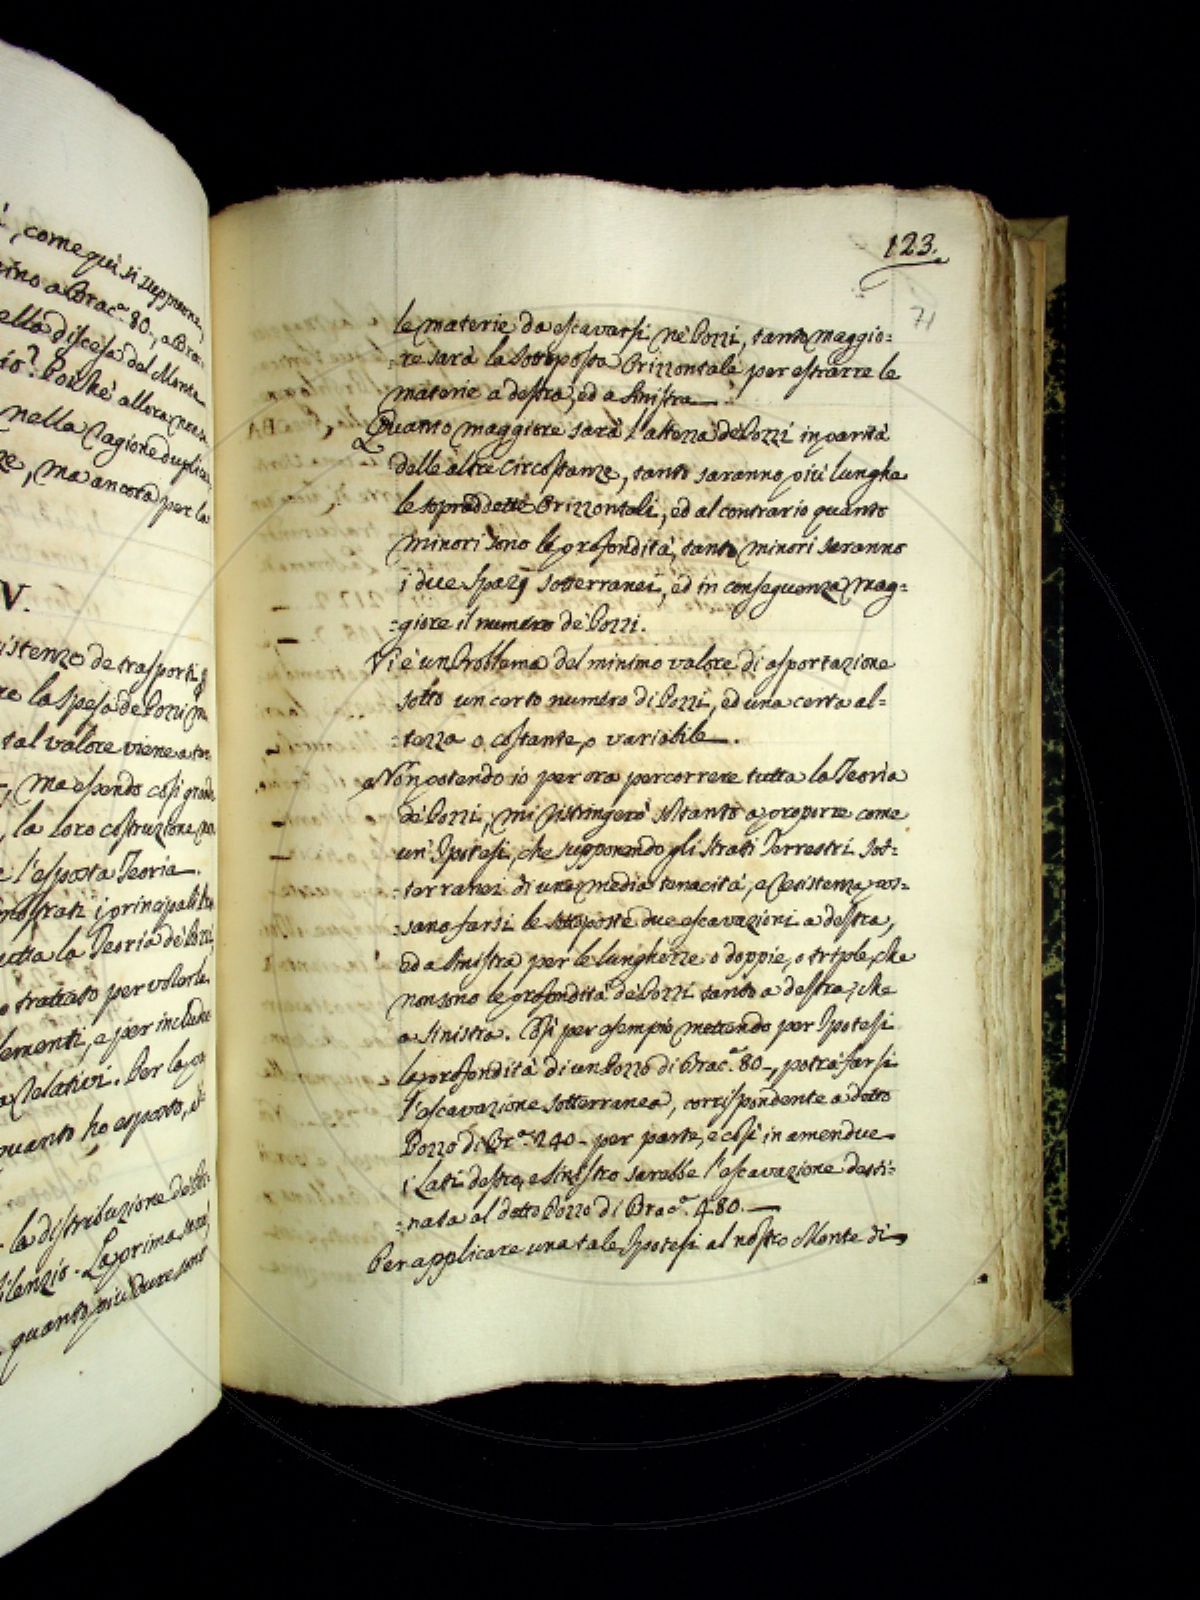 ì, come quì si suppone,
sino a Brac.ª 80., a Bra:
ella discesa del Monte
io? Poichè allora non si
nella ragione duplica:
ze, ma ancora per la
V.
istenza de trasporti,
re la spesa de Pozzi
tal valore viene a
, ma essendo così grande
, la loro costruzione
e l'esposta Teoria.
strati i principali
utta la Teoria de Pozzi,
o trattato per volerla
lementi, e per include
a Relativi. Per la
quanto ho esposto, è
la distribuzione de
silenzio. La prima sarà,
quanto più dure sono
123.
71
le materie da escavarsi ne Pozzi, tanto maggio:
:re sarà la sottoposta Orizzontale per estrarre le
materie a destra, ed a sinistra.
Quanto maggiore sarà l'altezza de Pozzi in parità
delle altre circostanze, tanto saranno più lunghe
le sopraddette Orizzontali, ed al contrario quanto
minori sono le profondità, tanto minori saranno
i due spazj sotterranei, ed in conseguenza mag:
:giore il numero de Pozzi.
Vi è un Problema del minimo valore di asportazione
sotto un certo numero di Pozzi, ed una certa al:
:tezza o costante, o variabile.
Non potendo io per ora percorrere tutta la Teoria
de Pozzi, mi ristringerò soltanto a proporre come
un' Ipotesi, che supponendo gli strati Terrestri sot:
:terranei di una media tenacità, e resistenza, pos:
:sano farsi le sottoposte due escavazioni a destra,
ed a sinistra per le lunghezze o doppie, o triple, che
non sono le profondità de Pozzi tanto a destra, che
a sinistra. Così per esempio mettendo per Ipotesi
la profondità di un Pozzo di Brac.ª 80., potrà farsi
l'escavazione sotterranea, corrispondente a detto
Pozzo di Br.ª 240. per parte, e così in amendue
i Lati destro, e sinistro sarebbe l'escavazione desti:
:nata al detto Pozzo di Brac.ª 480.
Per applicare una tale Ipotesi al nostro Monte di